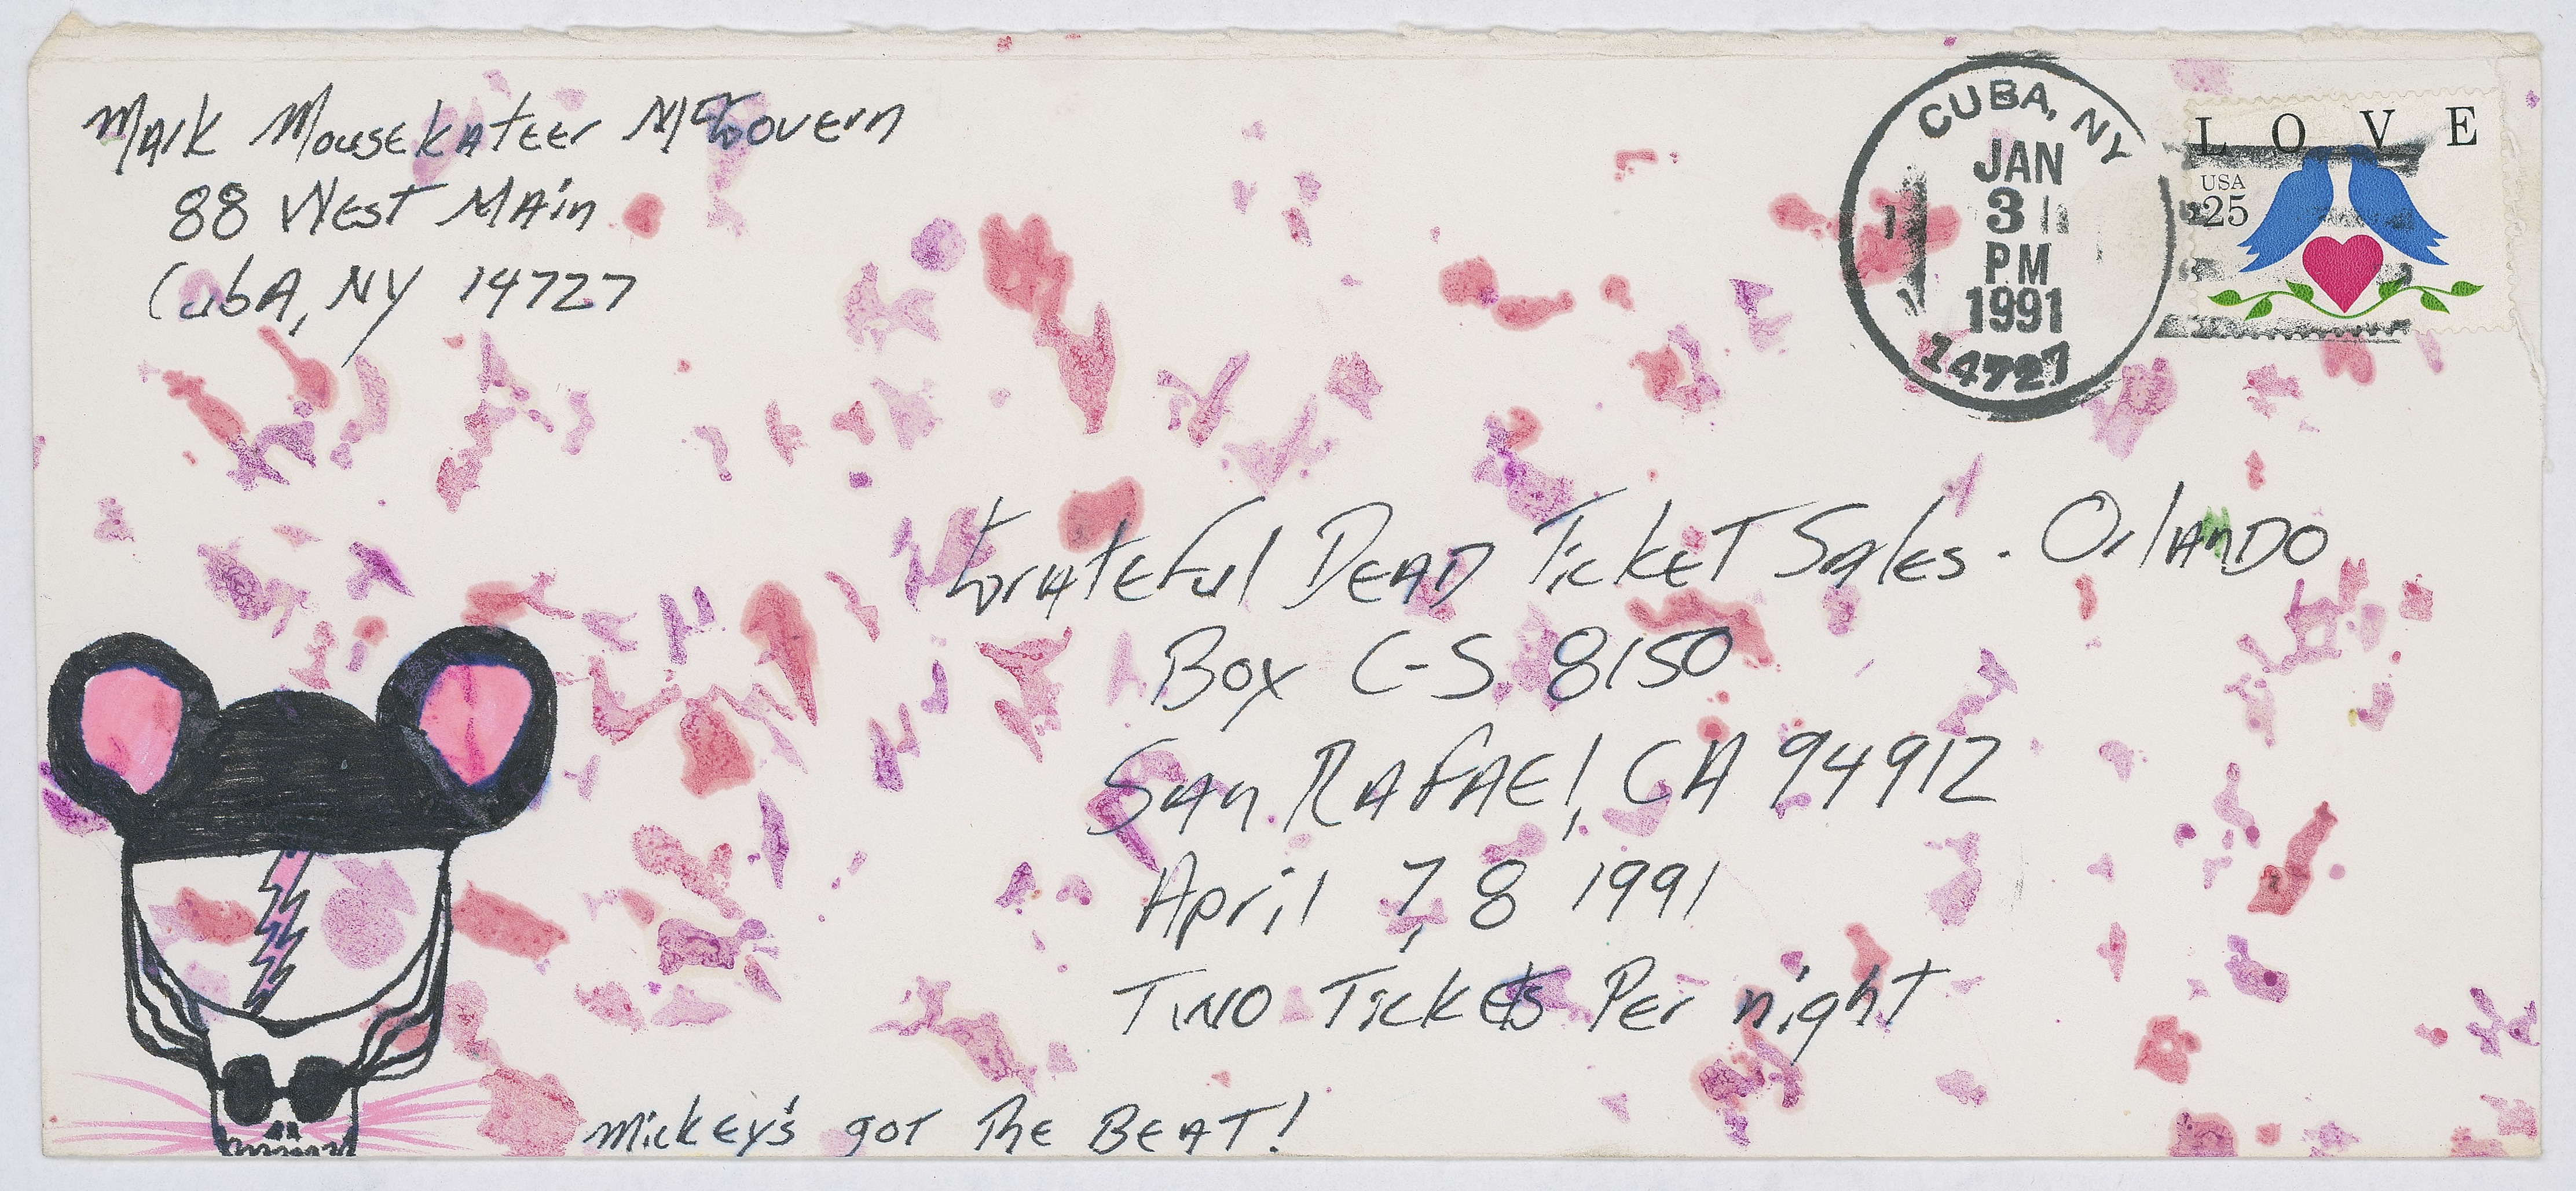 Mark Mousekateer McGovern
88 West Main
Cuba, NY 14727
CUBA, NY
JAN
31
PM
1991
14727
LOVE
USA
25
Grateful Dead Ticket Sales - Orlando
Box C-S 8150
San Rafael, CA 94912
April 7, 8 1991
Two Tickets Per night
Mickey's got The BEAT!